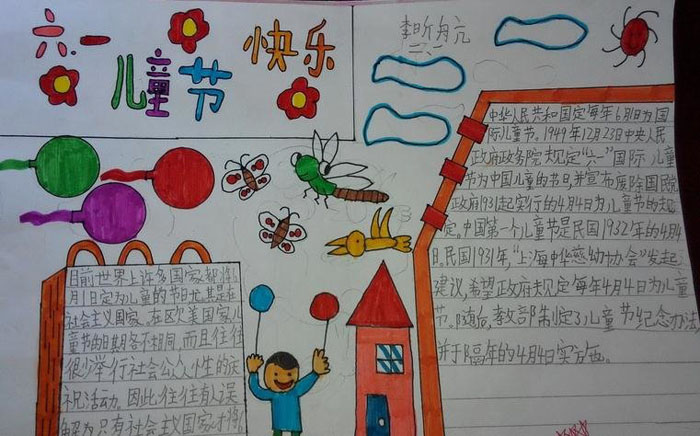 六.一
快乐
儿童节
李昕舟
二、一
中华人民共和国定每年6月1日为国
际儿童节。1949年12月23日中央人民
政府政务院规定“六一”国际儿童
节为中国儿童的节日,并宣布废除国民党
政府1931起实行的4月4日为儿童节的规
定。中国第一个儿童节是民国1932年的4月4
日。民国1931年,“上海中华慈幼协会”发起
建议,希望政府规定每年4月4日为儿童
节。随后,教部制定了儿童节纪念办法
并于隔年的4月4日实施。
目前世界上许多国家都将6
月1日定为儿童的节日尤其是在
社会主义国家。在欧美国家儿
童节的日期各不相同,而且往往
很少举行社会公众性的庆
祝活动。因此往往有人误
解为只有社会主义国家才将6